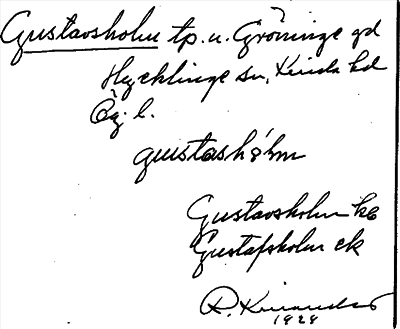 Gustavsholm tp. u. Gröninge gd
Hycklinge sn, Kinda hd
Ög. l.
gustashólm
Gustavsholm kb
Gustafsholm ek
1928